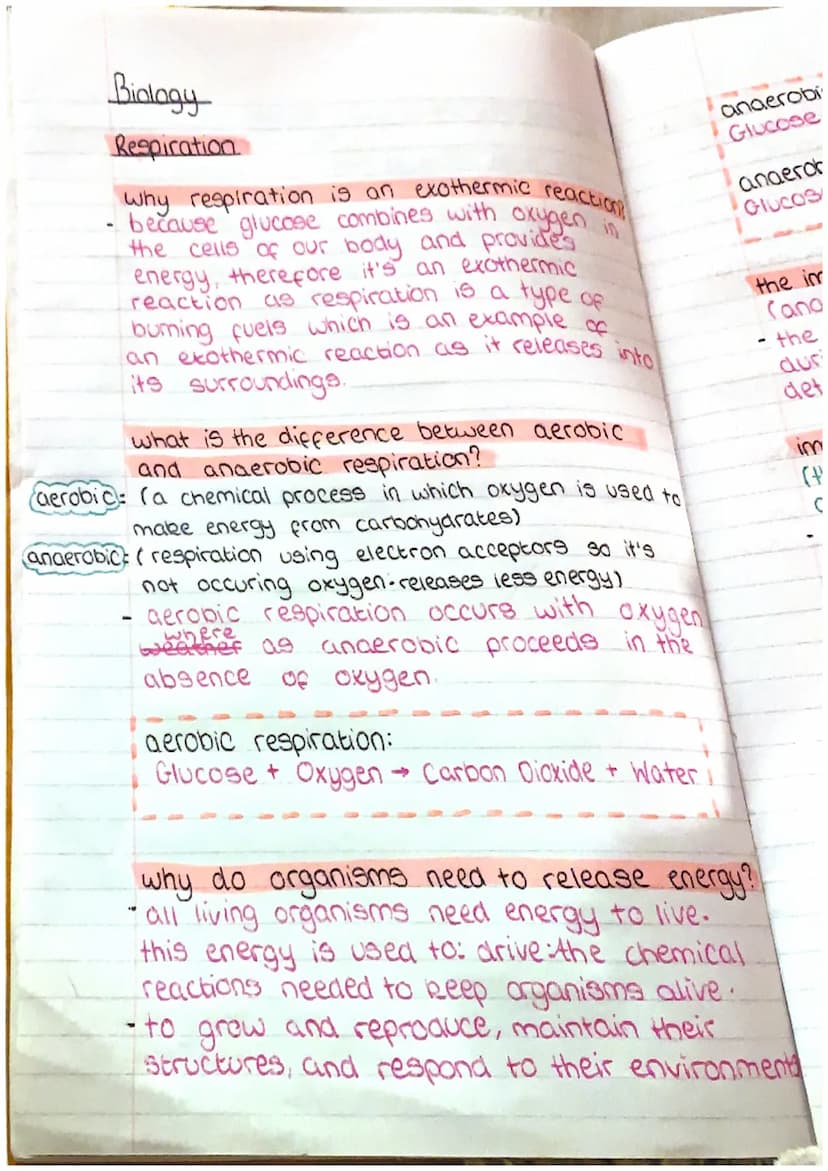 Biology
Respiration
why respiration is an exothermic reaction?
- because glucose combines with oxygen in
the cells of our body and provides
energy, therefore it's an exothermic
reaction as respiration is a type of
burning fuels which is an example of
an exothermic reaction as it releases into
its surroundings.
what is the difference between aerobic
and anaerobic respiration?
aerobic: (a chemical process in which oxygen is used to
make energy from carbohydrates)
anaerobic: (respiration using electron acceptors so it's
not occuring oxygen · releases less energy)
- aerobic respiration occurs with oxygen
where
weather as anaerobic proceeds in the
absence of oxygen.
aerobic respiration:
Glucose + Oxygen → Carbon Dioxide + Water
why do organisms need to release energy?
- all living organisms need energy to live.
this energy is used to: drive the chemical
reactions needed to keep organisms alive.
- to grow and reproduce, maintain their
structures, and respond to their environments
anaerobi
Glucose
anaerob
Glucos
the im
(ana
- the
duri
det
im
(th